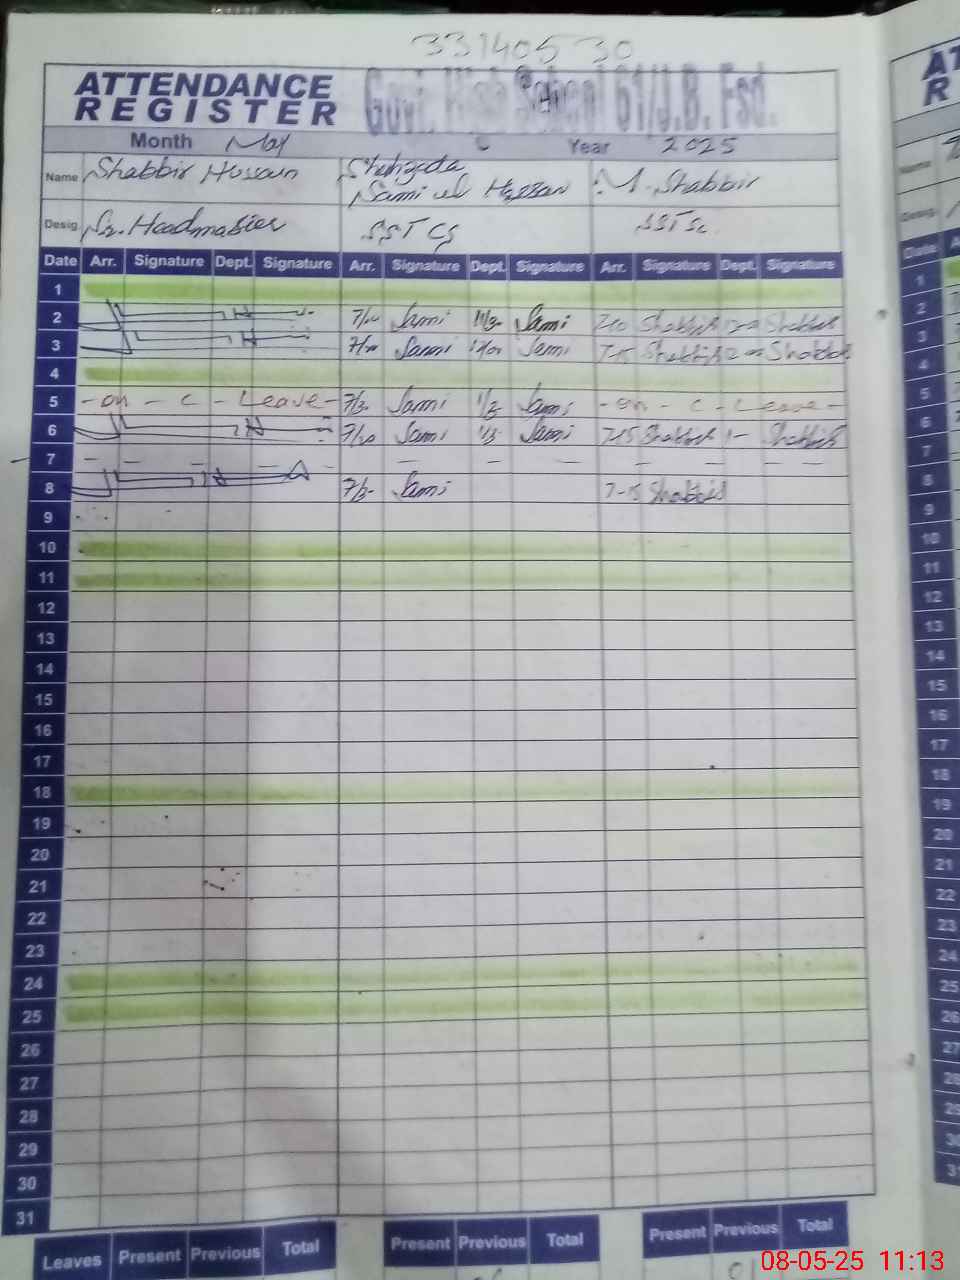 33140530
ATTENDANCE
REGISTER
Govt. High School 61/J.B. Fsd.
Month May Year 2025
Name Shabbir Hussain Shehzada Sami ul Hassan M. Shabbir
Desig. Sr. Headmaster SST CS SST Sc.
Date Arr. Signature Dept. Signature Arr. Signature Dept. Signature Arr. Signature Dept. Signature
1
2 Sami Sami Shabbir Shabbir
3 Sami Sami 7-15 Shabbir Shabbir
4
5 - on - C - Leave - Sami Sami - on - C - Leave -
6 Sami Sami 7-15 Shabbir 1- Shabbir
7 - - - - - - - - - - -
8 Sami 7-15 Shabbir
9
10
11
12
13
14
15
16
17
18
19
20
21
22
23
24
25
26
27
28
29
30
31
Leaves Present Previous Total Present Previous Total Present Previous Total
AT
R
Name
Desig.
Date A
1
2
3
4
5
6
7
8
9
10
11
12
13
14
15
16
17
18
19
20
21
22
23
24
25
26
27
28
29
30
31
08-05-25 11:13